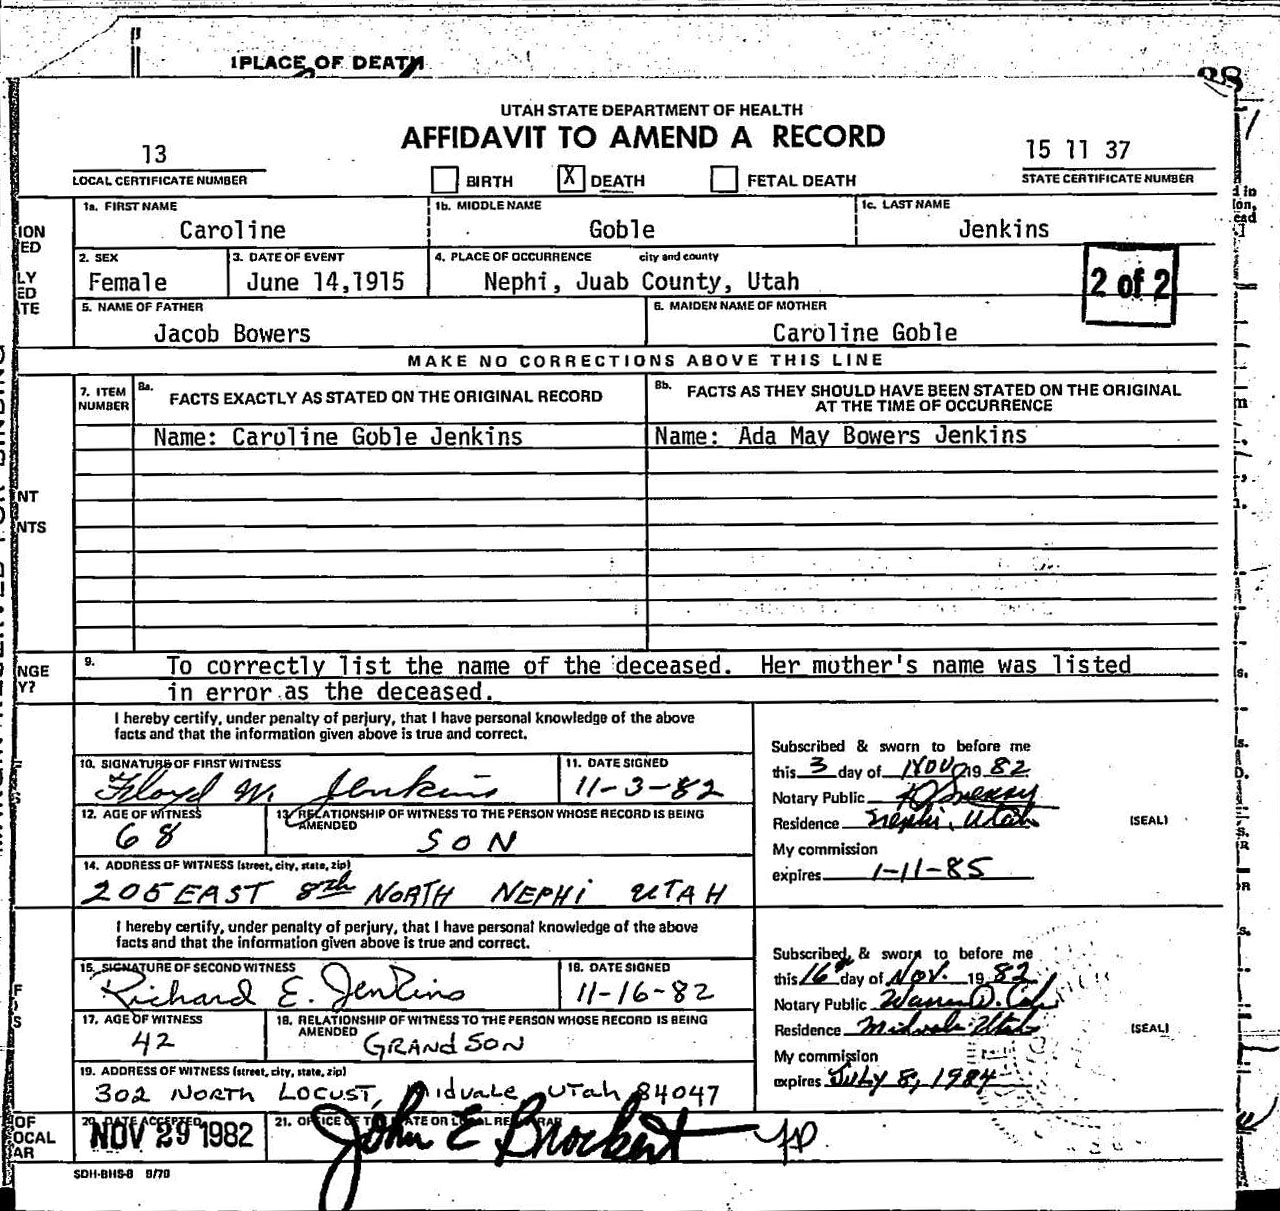 PLACE OF DEATH
UTAH STATE DEPARTMENT OF HEALTH
AFFIDAVIT TO AMEND A RECORD
13
LOCAL CERTIFICATE NUMBER
BIRTH X DEATH FETAL DEATH
15 11 37
STATE CERTIFICATE NUMBER
1a. FIRST NAME 1b. MIDDLE NAME 1c. LAST NAME
Caroline Goble Jenkins
2. SEX 3. DATE OF EVENT 4. PLACE OF OCCURRENCE city and county
Female June 14,1915 Nephi, Juab County, Utah
2 of 2
5. NAME OF FATHER 6. MAIDEN NAME OF MOTHER
Jacob Bowers Caroline Goble
MAKE NO CORRECTIONS ABOVE THIS LINE
7. ITEM NUMBER 8a. FACTS EXACTLY AS STATED ON THE ORIGINAL RECORD 8b. FACTS AS THEY SHOULD HAVE BEEN STATED ON THE ORIGINAL
AT THE TIME OF OCCURRENCE
Name: Caroline Goble Jenkins Name: Ada May Bowers Jenkins
9. To correctly list the name of the deceased. Her mother's name was listed
in error as the deceased.
I hereby certify, under penalty of perjury, that I have personal knowledge of the above
facts and that the information given above is true and correct.
10. SIGNATURE OF FIRST WITNESS 11. DATE SIGNED
Floyd M. Jenkins 11-3-82
12. AGE OF WITNESS 13. RELATIONSHIP OF WITNESS TO THE PERSON WHOSE RECORD IS BEING
AMENDED
68 SON
14. ADDRESS OF WITNESS (street, city, state, zip)
205 EAST 8th NORTH NEPHI UTAH
Subscribed & sworn to before me
this 3 day of NOV 19 82
Notary Public
Residence Nephi, Utah (SEAL)
My commission
expires 1-11-85
I hereby certify, under penalty of perjury, that I have personal knowledge of the above
facts and that the information given above is true and correct.
15. SIGNATURE OF SECOND WITNESS 16. DATE SIGNED
Richard E. Jenkins 11-16-82
17. AGE OF WITNESS 18. RELATIONSHIP OF WITNESS TO THE PERSON WHOSE RECORD IS BEING
AMENDED
42 GRANDSON
19. ADDRESS OF WITNESS (street, city, state, zip)
302 NORTH LOCUST, Midvale, Utah 84047
Subscribed & sworn to before me
this 16th day of Nov. 19 82
Notary Public Warren D.
Residence Midvale Utah (SEAL)
My commission
expires July 8, 1984
20. DATE ACCEPTED 21. OFFICE OF STATE OR LOCAL REGISTRAR
NOV 29 1982 John E Brockert
SDH-BHS-8 9/79